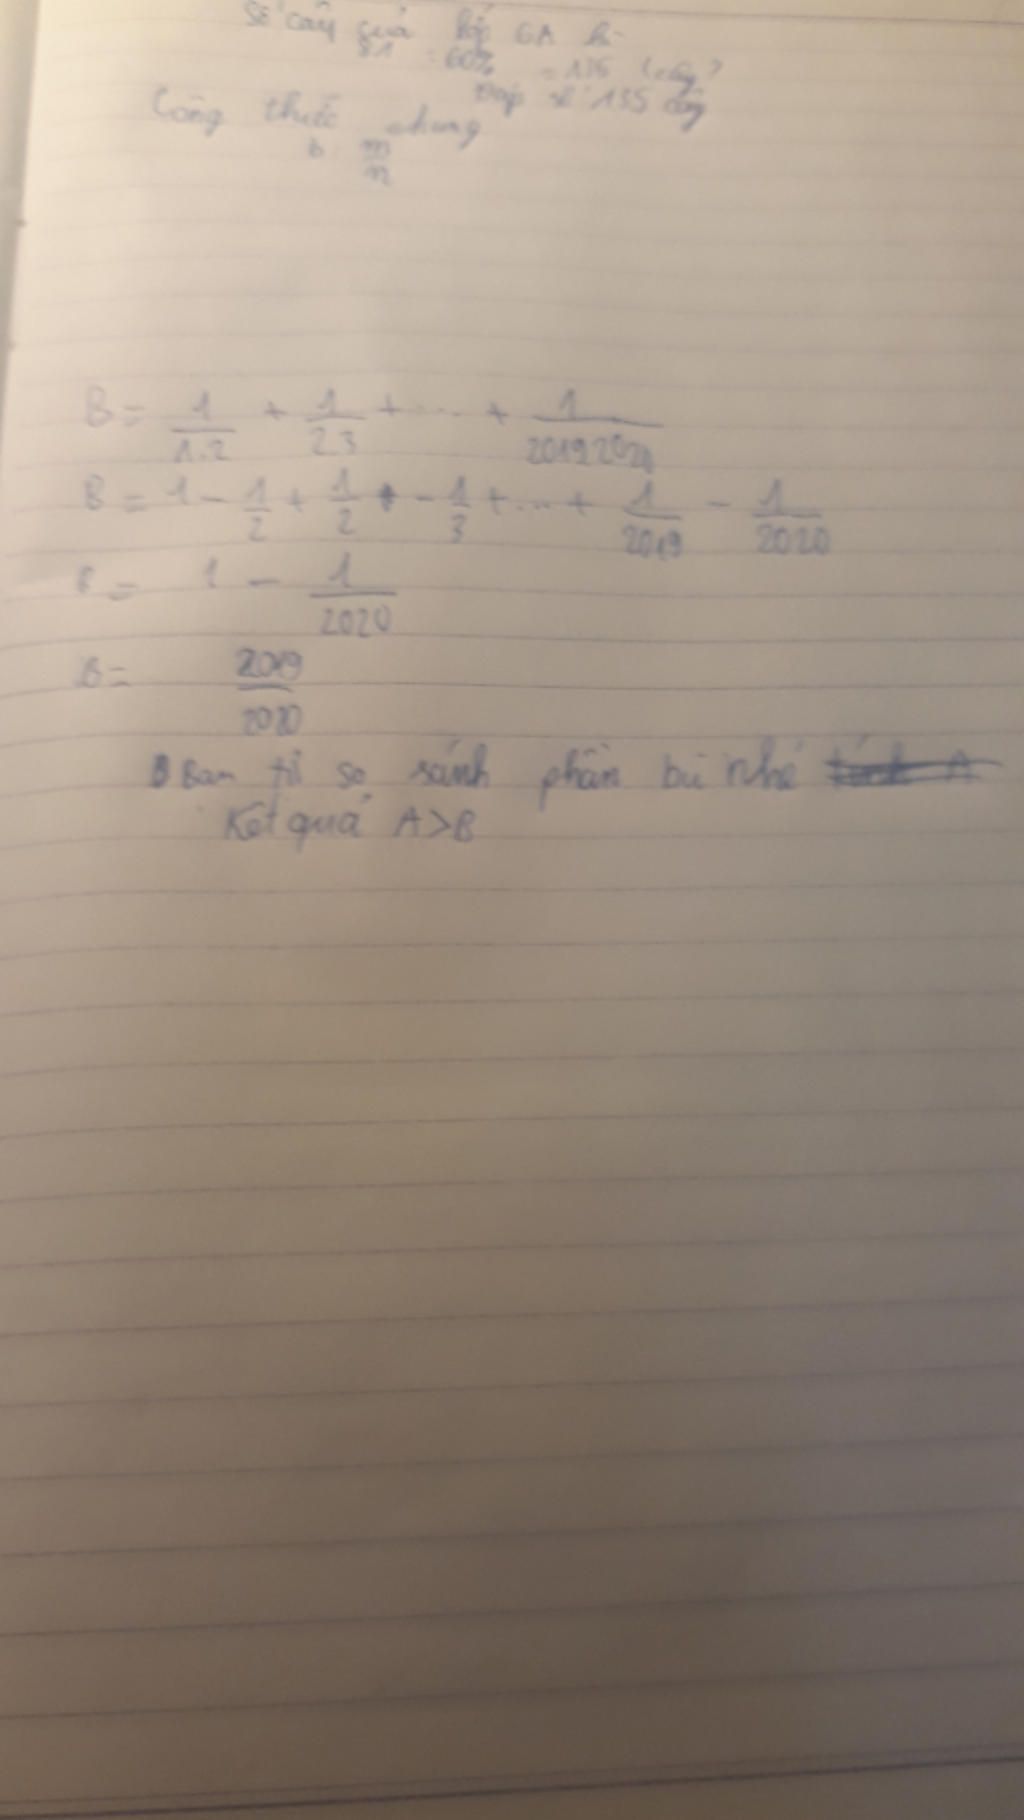 Số cây quả lớp 6A là
81 : 60% = 135 (cây)
Đáp số 135 cây
Công thức chung
b : m/n
B = 1/1.2 + 1/2.3 + ... + 1/2019.2020
B = 1 - 1/2 + 1/2 - 1/3 + ... + 1/2019 - 1/2020
B = 1 - 1/2020
B = 2019/2020
Bạn tự so sánh phần bù nhé
Kết quả A > B